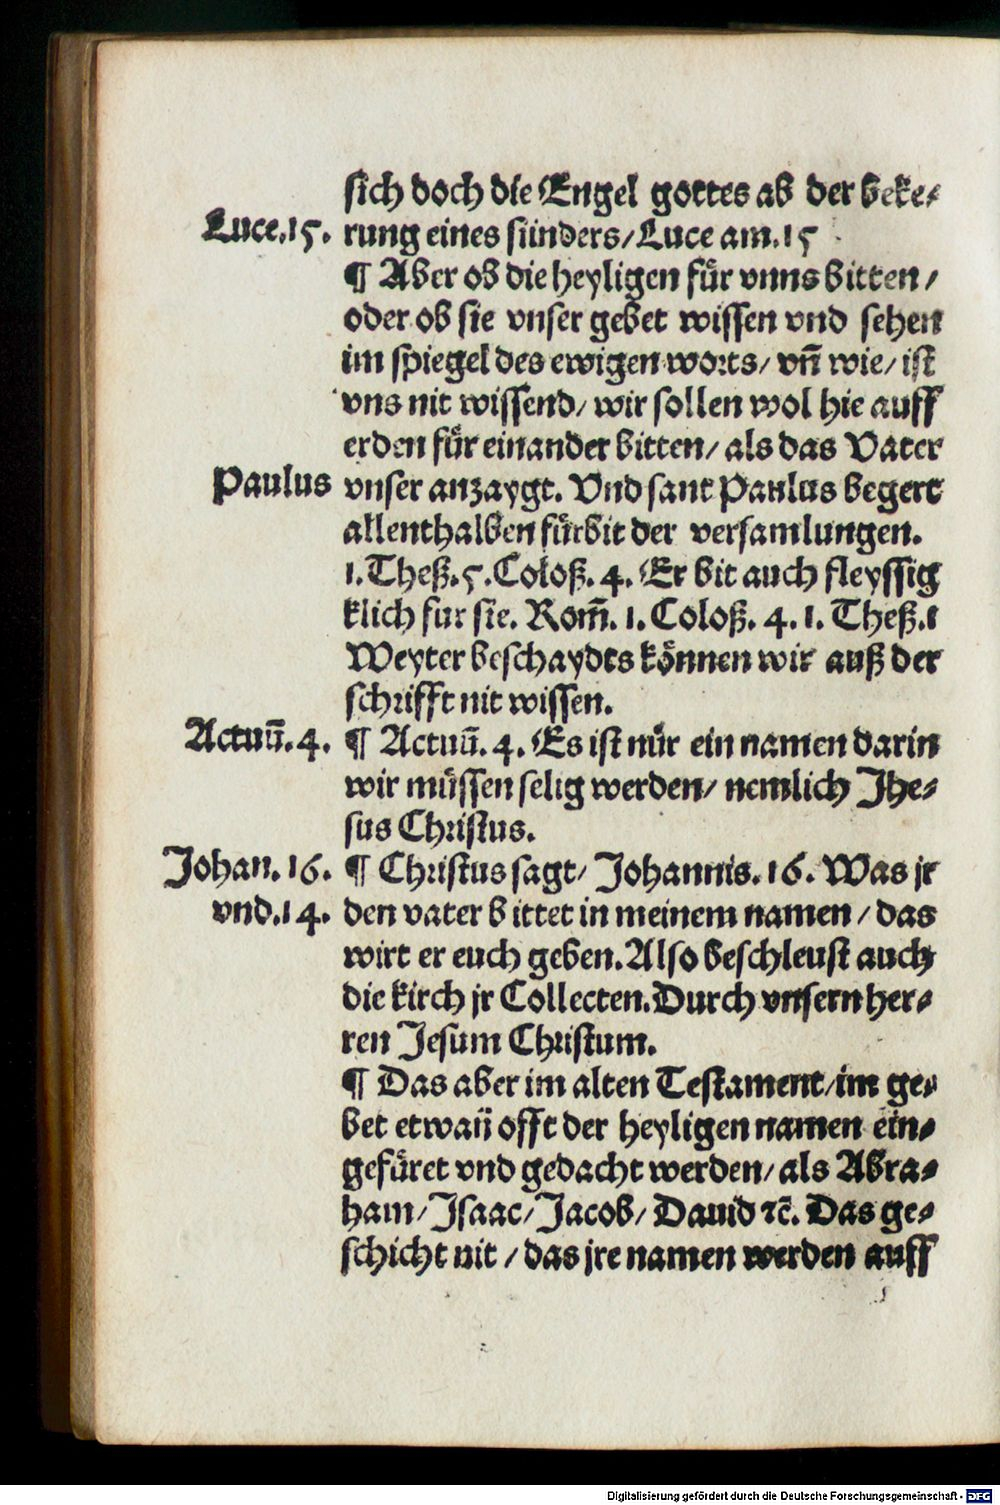 sich doch die Engel gottes ab der beke⸗
Luce.15. rung eines sünders/Luce am.15
¶ Aber ob die heyligen für vnns bitten/
oder ob sie vnser gebet wissen vnd sehen
im spiegel des ewigen worts/ vñ wie/ ist
vns nit wissend/ wir sollen wol hie auff
erden für einander bitten/ als das Vater
Paulus vnser anzaygt. Vnd sant Paulus begert
allenthalben fürbit der versamlungen.
1.Theß.5.Coloß.4. Er bit auch fleyssig
klich fur sie. Rom̃.1. Coloß.4.1. Theß.1
Weyter beschaydts können wir auß der
schrifft nit wissen.
Actuũ.4. ¶ Actuũ.4. Es ist nůr ein namen darin
wir müssen selig werden/ nemlich Jhe⸗
sus Christus.
Johan.16. ¶ Christus sagt/ Johannis.16. Was jr
vnd.14. den vater bittet in meinem namen/ das
wirt er euch geben. Also beschleust auch
die kirch jr Collecten. Durch vnsern her⸗
ren Jesum Christum.
¶ Das aber im alten Testament/im ge⸗
bet etwañ offt der heyligen namen ein⸗
gefüret vnd gedacht werden/ als Abra⸗
ham/ Jsaac/ Jacob/ Dauid ꝛc̃. Das ge⸗
schicht nit/ das jre namen werden auff
Digitalisierung gefördert durch die Deutsche Forschungsgemeinschaft - DFG